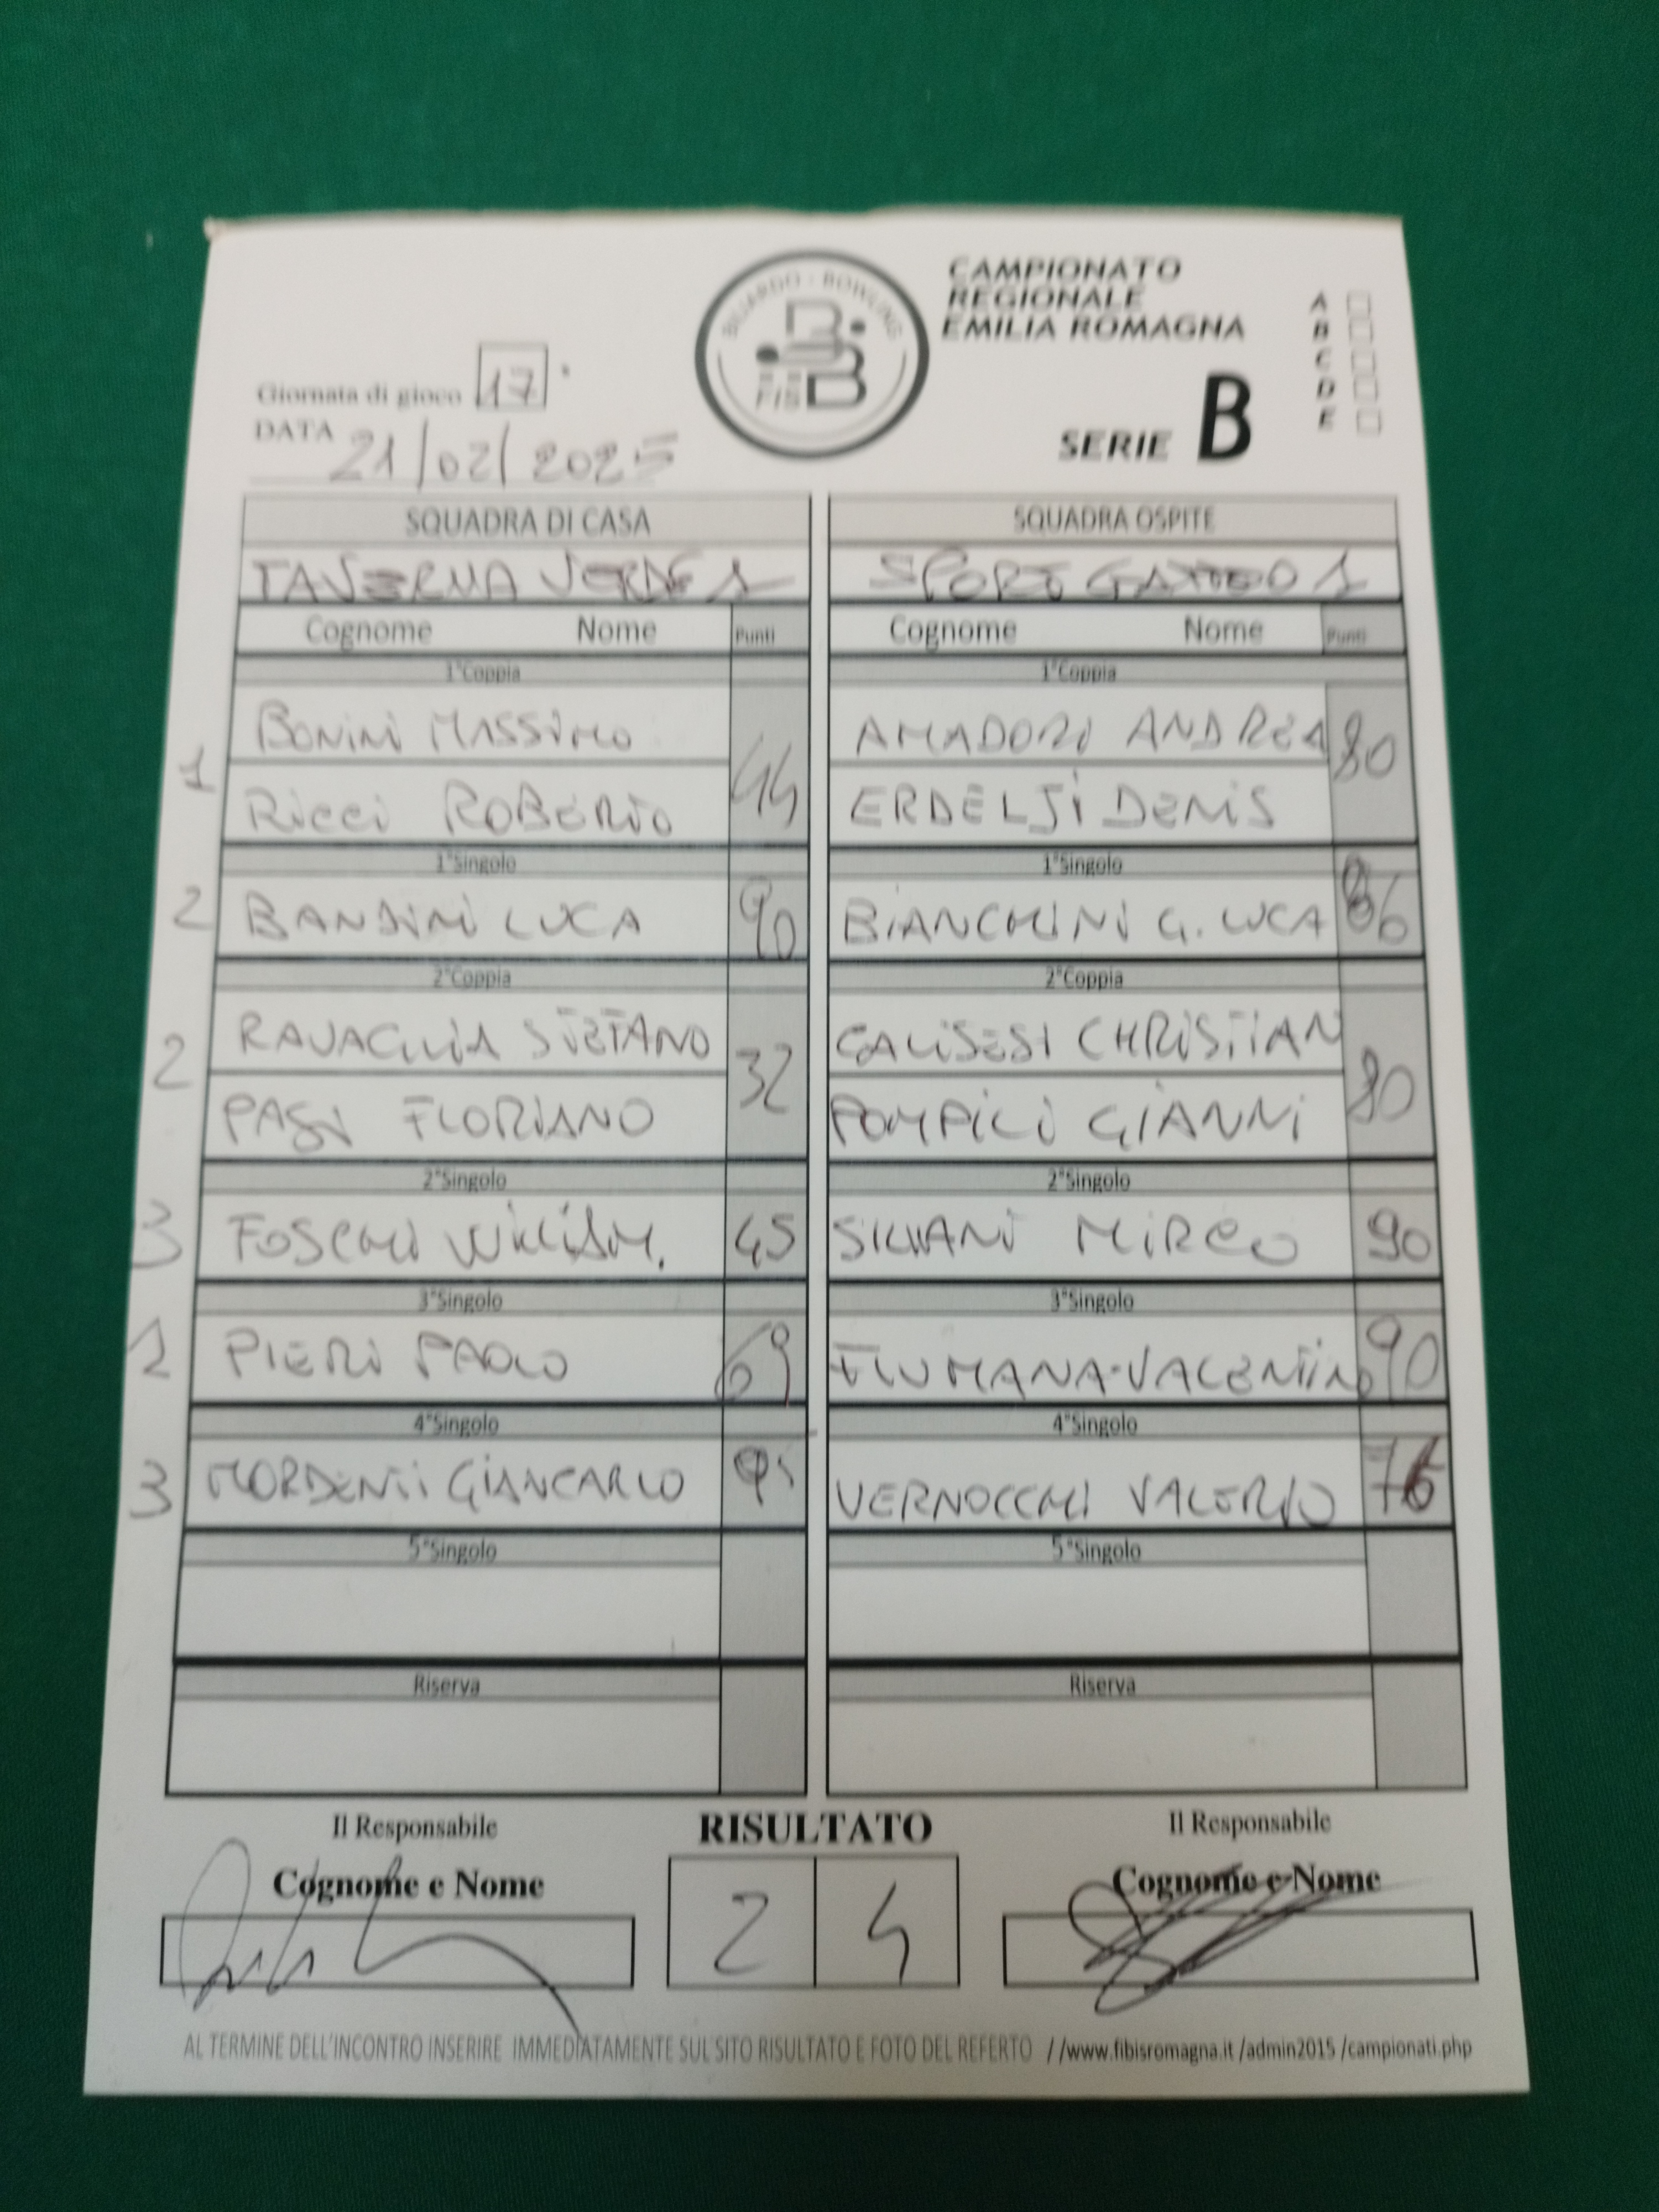 BILIARDO - BOWLING
FISBB
CAMPIONATO
REGIONALE
EMILIA ROMAGNA
A
B
C
D
E
SERIE B
Giornata di gioco 17
DATA 21/02/2025
SQUADRA DI CASA SQUADRA OSPITE
TAVERNA VERDE 1 SPORT GATTEO 1
Cognome Nome Punti Cognome Nome Punti
1°Coppia 1°Coppia
BONINI MASSIMO AMADORI ANDREA
1 44 80
RICCI ROBERTO ERDELJI DENIS
1°Singolo 1°Singolo
2 BANDINI LUCA 90 BIANCHINI G. LUCA 86
2°Coppia 2°Coppia
RAVAGLIA STEFANO CALISESI CHRISTIAN
2 32 80
PASI FLORIANO POMPILI GIANNI
2°Singolo 2°Singolo
3 FOSCHI WILLIAM. 45 SILVANI MIRCO 90
3°Singolo 3°Singolo
1 PIERI PAOLO 69 FIUMANA VALENTINO 90
4°Singolo 4°Singolo
3 MORDENTI GIANCARLO VERNOCCHI VALERIO 76
5°Singolo 5°Singolo
Riserva Riserva
Il Responsabile RISULTATO Il Responsabile
Cognome e Nome 2 4 Cognome e Nome
AL TERMINE DELL'INCONTRO INSERIRE IMMEDIATAMENTE SUL SITO RISULTATO E FOTO DEL REFERTO //www.fibisromagna.it /admin2015 /campionati.php